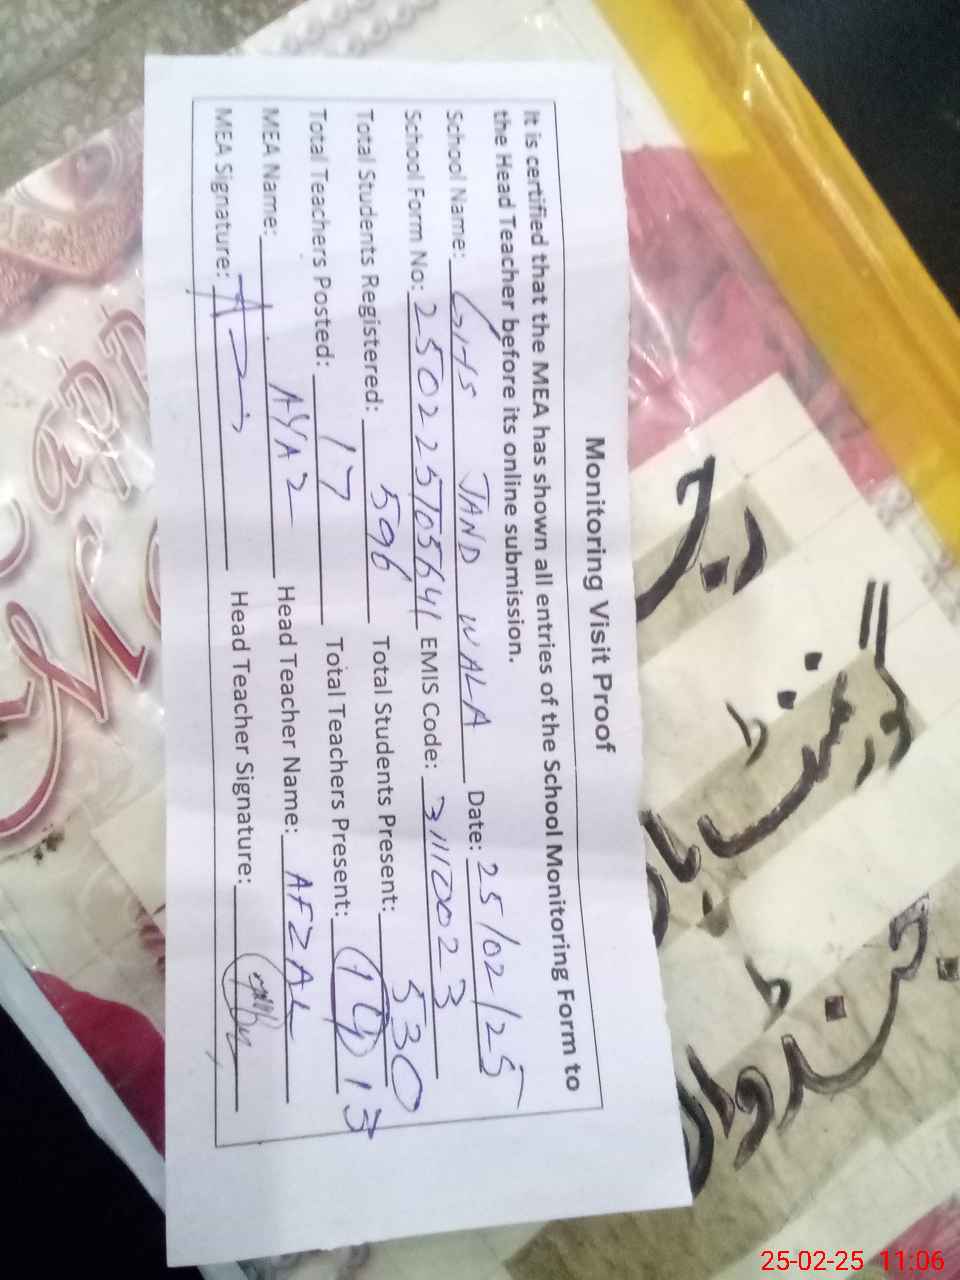 Monitoring Visit Proof
It is certified that the MEA has shown all entries of the School Monitoring Form to
the Head Teacher before its online submission.
School Name: GHS JAND WALA Date: 25/02/25
School Form No: 250225705641 EMIS Code: 31110023
Total Students Registered: 596 Total Students Present: 530
Total Teachers Posted: 17 Total Teachers Present: 15
MEA Name: AYAZ Head Teacher Name: AFZAL
MEA Signature: Head Teacher Signature:
گورنمنٹ
25-02-25 11:06